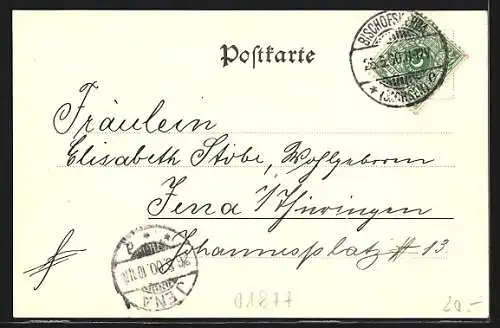 Postkarte
BISCHOFSWERDA
(SACHSEN)
Fräulein
Elisabeth Stobe, Wohlgeboren
Jena i/Thüringen
Johannesplatz # 13
JENA
01877
20.-